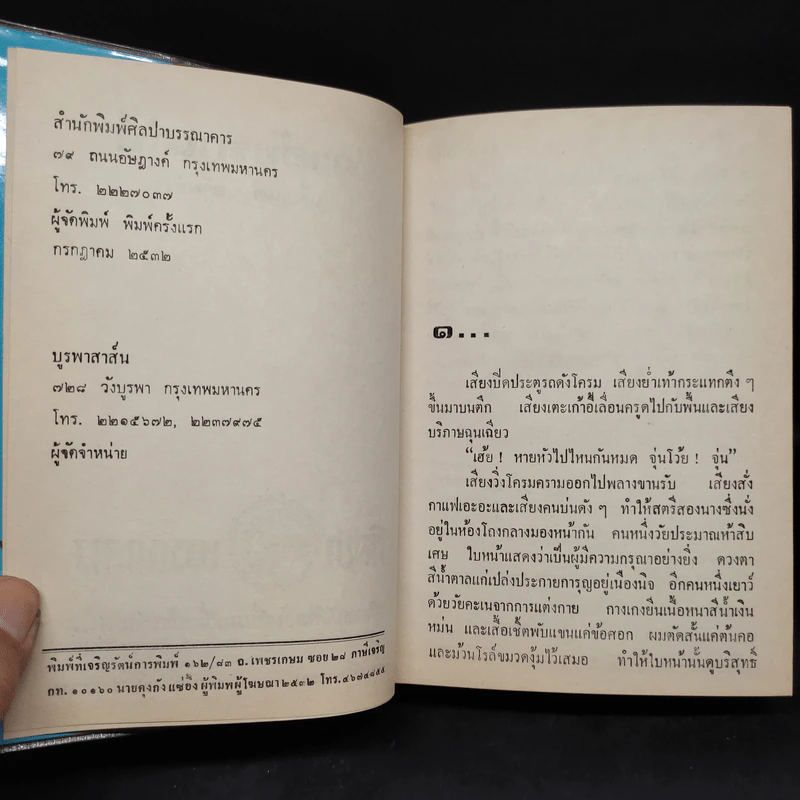 สำนักพิมพ์ศิลปาบรรณาคาร
๗๙ ถนนอัษฎางค์ กรุงเทพมหานคร
โทร. ๒๒๒๗๐๓๗
ผู้จัดพิมพ์ พิมพ์ครั้งแรก
กรกฎาคม ๒๕๓๒
บูรพาสาส์น
๗๒๘ วังบูรพา กรุงเทพมหานคร
โทร. ๒๒๑๕๖๗๒, ๒๒๓๗๙๗๕
ผู้จัดจำหน่าย
พิมพ์ที่เจริญรัตน์การพิมพ์ ๑๖๒/๘๓ ถ.เพชรเกษม ซอย ๒๘ ภาษีเจริญ
กท. ๑๐๑๖๐ นายคุงกัง แซ่อึ้ง ผู้พิมพ์ผู้โฆษณา ๒๕๓๒ โทร.๔๖๗๔๘๕๕
๑...
เสียงปิดประตูรถดังโครม เสียงย่ำเท้ากระแทกตึง ๆ
ขึ้นมาบนตึก เสียงเตะเก้าอี้เลื่อนครูดไปกับพื้นและเสียง
บริภาษฉุนเฉียว
“เฮ้ย ! หายหัวไปไหนกันหมด จุ่นโว้ย ! จุ่น”
เสียงวิ่งโครมครามออกไปพลางขานรับ เสียงสั่ง
กาแฟเอะอะและเสียงคนบ่นดัง ๆ ทำให้สตรีสองนางซึ่งนั่ง
อยู่ในห้องโถงกลางมองหน้ากัน คนหนึ่งวัยประมาณห้าสิบ
เศษ ใบหน้าแสดงว่าเป็นผู้มีความกรุณาอย่างยิ่ง ดวงตา
สีน้ำตาลแก่เปล่งประกายการุญอยู่เนืองนิจ อีกคนหนึ่งเยาว์
ด้วยวัยคะเนจากการแต่งกาย กางเกงยีนเนื้อหนาสีน้ำเงิน
หม่น และเสื้อเชิ้ตพับแขนแค่ข้อศอก ผมตัดสั้นแค่ต้นคอ
และม้วนโรล์ขมวดงุ้มไว้เสมอ ทำให้ใบหน้านั้นดูบริสุทธิ์